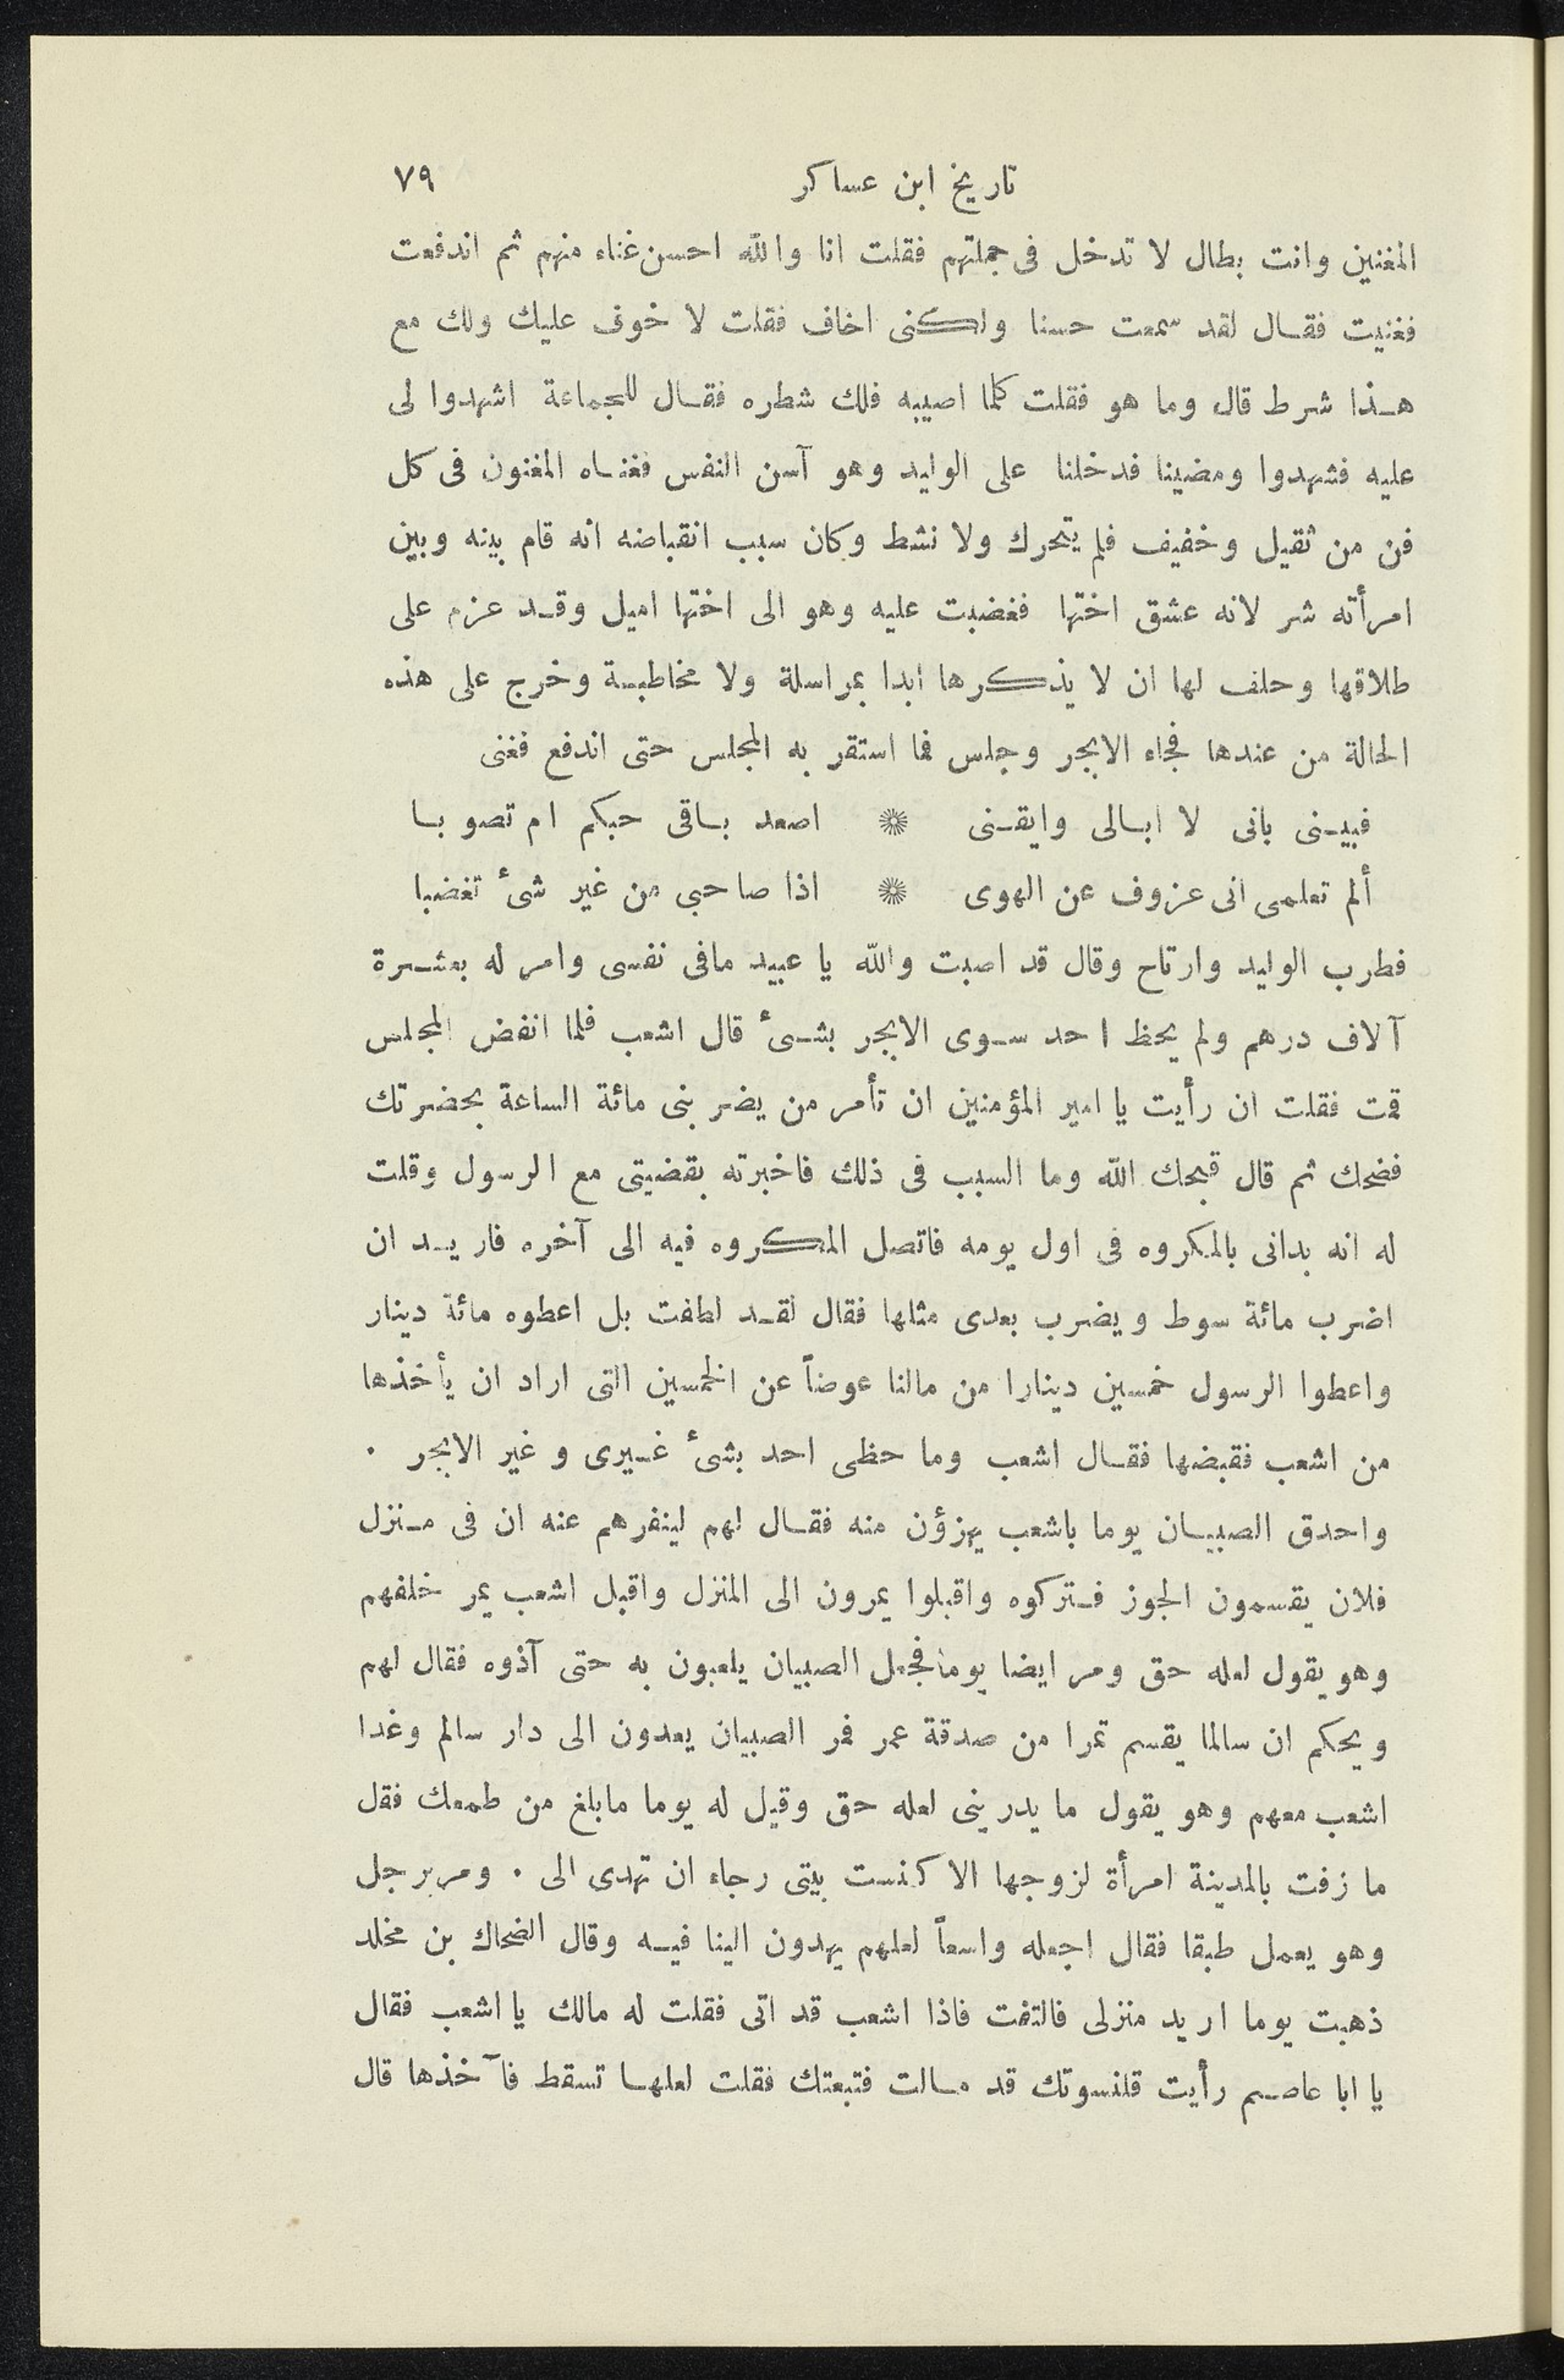 تاريخ ابن عساكر ٧٩
المغنين وانت بطال لا تدخل فى جملتهم فقلت انا والله احسن غناء منهم ثم اندفعت
فغنيت فقال لقد سمعت حسنا ولكنى اخاف فقلت لا خوف عليك ولك مع
هذا شرط قال وما هو فقلت كلما اصيبه فلك شطره فقال للجماعة اشهدوا لى
عليه فشهدوا ومضينا فدخلنا على الوليد وهو آسن النفس فغناه المغنون فى كل
فن من ثقيل وخفيف فلم يتحرك ولا نشط وكان سبب انقباضه انه قام بينه وبين
امرأته شر لانه عشق اختها فغضبت عليه وهو الى اختها اميل وقد عزم على
طلاقها وحلف لها ان لا يذكرها ابدا بمراسلة ولا مخاطبة وخرج على هذه
الحالة من عندها فجاء الابجر وجلس فما استقر به المجلس حتى اندفع فغنى
فبينى بانى لا ابالى وايقنى ❋ اصعد باقى حبكم ام تصوبا
ألم تعلمى انى عزوف عن الهوى ❋ اذا صاحبى من غير شئ تغضبا
فطرب الوليد وارتاح وقال قد اصبت والله يا عبيد مافى نفسى وامر له بعشرة
آلاف درهم ولم يحظ احد سوى الابجر بشئ قال اشعب فلما انفض المجلس
قمت فقلت ان رأيت يا امير المؤمنين ان تأمر من يضربنى مائة الساعة بحضرتك
فضحك ثم قال قبحك الله وما السبب فى ذلك فاخبرته بقضيتى مع الرسول وقلت
له انه بدانى بالمكروه فى اول يومه فاتصل المكروه فيه الى آخره فاريد ان
اضرب مائة سوط ويضرب بعدى مثلها فقال لقد لطفت بل اعطوه مائة دينار
واعطوا الرسول خمسين دينارا من مالنا عوضاً عن الخمسين التى اراد ان يأخذها
من اشعب فقبضها فقال اشعب وما حظى احد بشئ غيرى وغير الابجر .
واحدق الصبيان يوما باشعب يهزؤن منه فقال لهم لينفرهم عنه ان فى منزل
فلان يقسمون الجوز فتركوه واقبلوا يمرون الى المنزل واقبل اشعب يمر خلفهم
وهو يقول لعله حق ومر ايضا يوما فجعل الصبيان يلعبون به حتى آذوه فقال لهم
ويحكم ان سالما يقسم تمرا من صدقة عمر فمر الصبيان يعدون الى دار سالم وغدا
اشعب معهم وهو يقول ما يدرينى لعله حق وقيل له يوما مابلغ من طمعك فقل
ما زفت بالمدينة امرأة لزوجها الا كنست بيتى رجاء ان تهدى الى . ومر برجل
وهو يعمل طبقا فقال اجعله واسعاً لعلهم يهدون الينا فيه وقال الضحاك بن مخلد
ذهبت يوما اريد منزلى فالتفت فاذا اشعب قد اتى فقلت له مالك يا اشعب فقال
يا ابا عاصم رأيت قلنسوتك قد مالت فتبعتك فقلت لعلها تسقط فآخذها قال